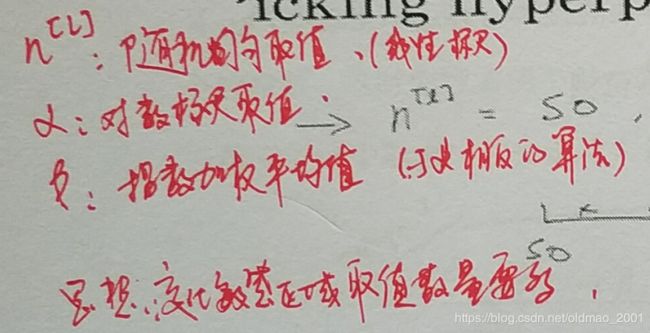 icking hyperp
n[L]: 随机均匀取值、(线性标尺)
α: 对数标尺取值. → n[l] = 50,
β: 指数加权平均值 (与α相反的算法)
50
思想: 变化敏感区域取值数量要多,
https://blog.csdn.net/oldmao_2001